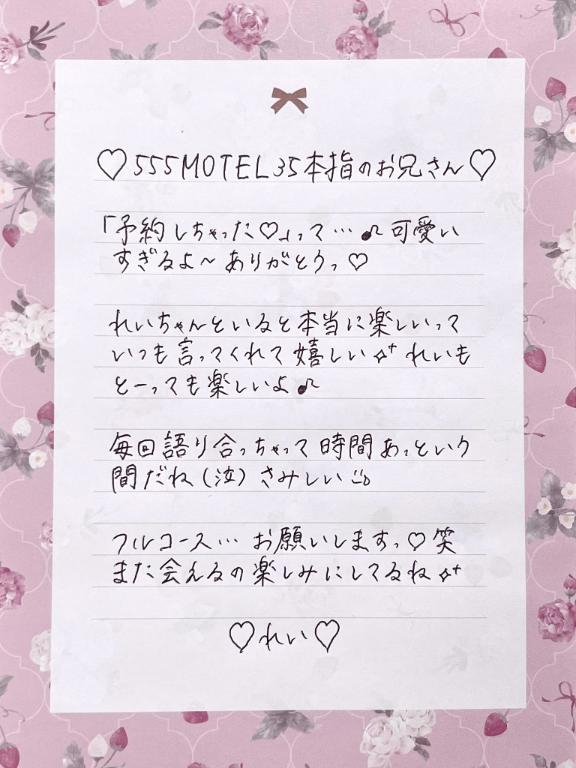 ♡555MOTEL 35本指のお兄さん♡
「予約しちゃった♡」って…♪可愛い
すぎるよ〜ありがとうっ♡
れいちゃんといると本当に楽しいって
いつも言ってくれて嬉しい✧⁺れいも
とーっても楽しいよ♪
毎回語り合っちゃって時間あっという
間だね(泣)さみしい
フルコース…お願いしますっ♡笑
また会えるの楽しみにしてるね✧⁺
♡れい♡